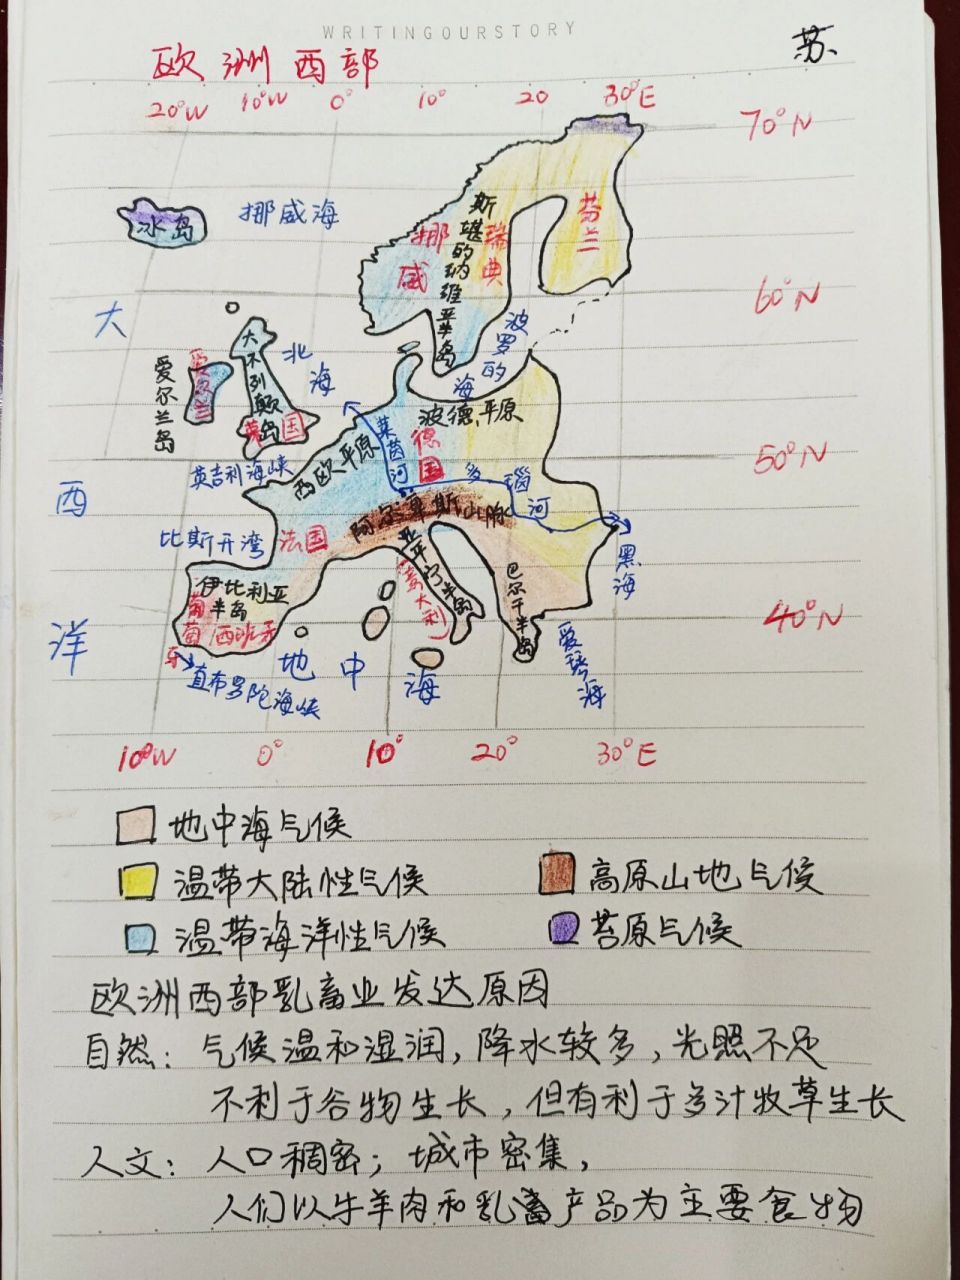 WRITINGOURSTORY
苏
欧洲西部
20°W 10°W 0° 10° 20 30°E
70°N
冰岛
挪威海
挪威
斯堪的纳维亚半岛
瑞典
芬兰
60°N
大
西
洋
爱尔兰岛
爱尔兰
大不列颠岛
英国
北海
波罗的海
波德平原
西欧平原
莱茵河
德国
50°N
英吉利海峡
多瑙河
阿尔卑斯山脉
比斯开湾
法国
黑海
伊比利亚半岛
葡萄牙
西班牙
亚平宁半岛
意大利
巴尔干半岛
40°N
直布罗陀海峡
地中海
爱琴海
10°W 0° 10° 20° 30°E
地中海气候
温带大陆性气候 高原山地气候
温带海洋性气候 苔原气候
欧洲西部乳畜业发达原因
自然：气候温和湿润，降水较多，光照不足
不利于谷物生长，但有利于多汁牧草生长
人文：人口稠密；城市密集，
人们以牛羊肉和乳畜产品为主要食物